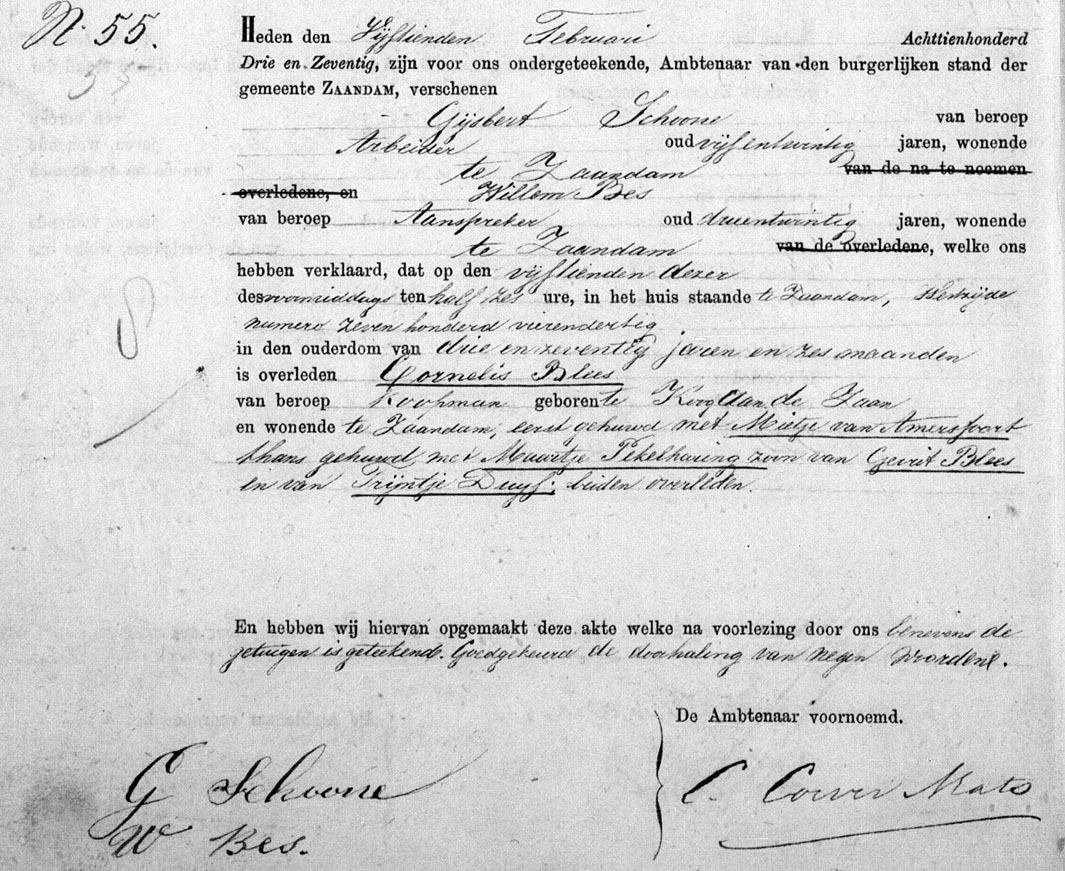 N. 55.
Heden den Vijftienden Februari Achttienhonderd
Drie en Zeventig, zijn voor ons ondergeteekende, Ambtenaar van den burgerlijken stand der
gemeente ZAANDAM, verschenen
Gijsbert Schoone van beroep
Arbeider oud vijfentwintig jaren, wonende
te Zaandam van de na te noemen
overledene, en Willem Bes
van beroep Aanspreker oud drieentwintig jaren, wonende
te Zaandam van de overledene, welke ons
hebben verklaard, dat op den vijftienden dezer
des voormiddags ten half zes ure, in het huis staande te Zaandam, Westzijde
numero zeven honderd vierendertig
in den ouderdom van drie en zeventig jaren en zes maanden
is overleden Cornelis Blees
van beroep Koopman geboren te Koog aan de Zaan
en wonende te Zaandam, eerst gehuwd met Mietje van Amersfoort
thans gehuwd met Maartje Pekelharing zoon van Gerrit Blees
en van Trijntje Duyf; beiden overleden.
En hebben wij hiervan opgemaakt deze akte welke na voorlezing door ons benevens de
getuigen is geteekend. Goedgekeurd de doorhaling van negen woorden.
De Ambtenaar voornoemd.
G Schoone
C. Corver Mats
W Bes.